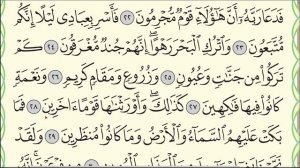 فَدَعَا رَبَّهُۥٓ أَنَّ هَٰٓؤُلَآءِ قَوْمٌ مُّجْرِمُونَ ٢٢ فَأَسْرِ بِعِبَادِى لَيْلًا إِنَّكُم
مُّتَّبَعُونَ ٢٣ وَٱتْرُكِ ٱلْبَحْرَ رَهْوًا إِنَّهُمْ جُندٌ مُّغْرَقُونَ ٢٤ كَمْ
تَرَكُوا۟ مِن جَنَّٰتٍ وَعُيُونٍ ٢٥ وَزُرُوعٍ وَمَقَامٍ كَرِيمٍ ٢٦ وَنَعْمَةٍ
كَانُوا۟ فِيهَا فَٰكِهِينَ ٢٧ كَذَٰلِكَ وَأَوْرَثْنَٰهَا قَوْمًا ءَاخَرِينَ ٢٨ فَمَا
بَكَتْ عَلَيْهِمُ ٱلسَّمَآءُ وَٱلْأَرْضُ وَمَا كَانُوا۟ مُنظَرِينَ ٢٩ وَلَقَدْ